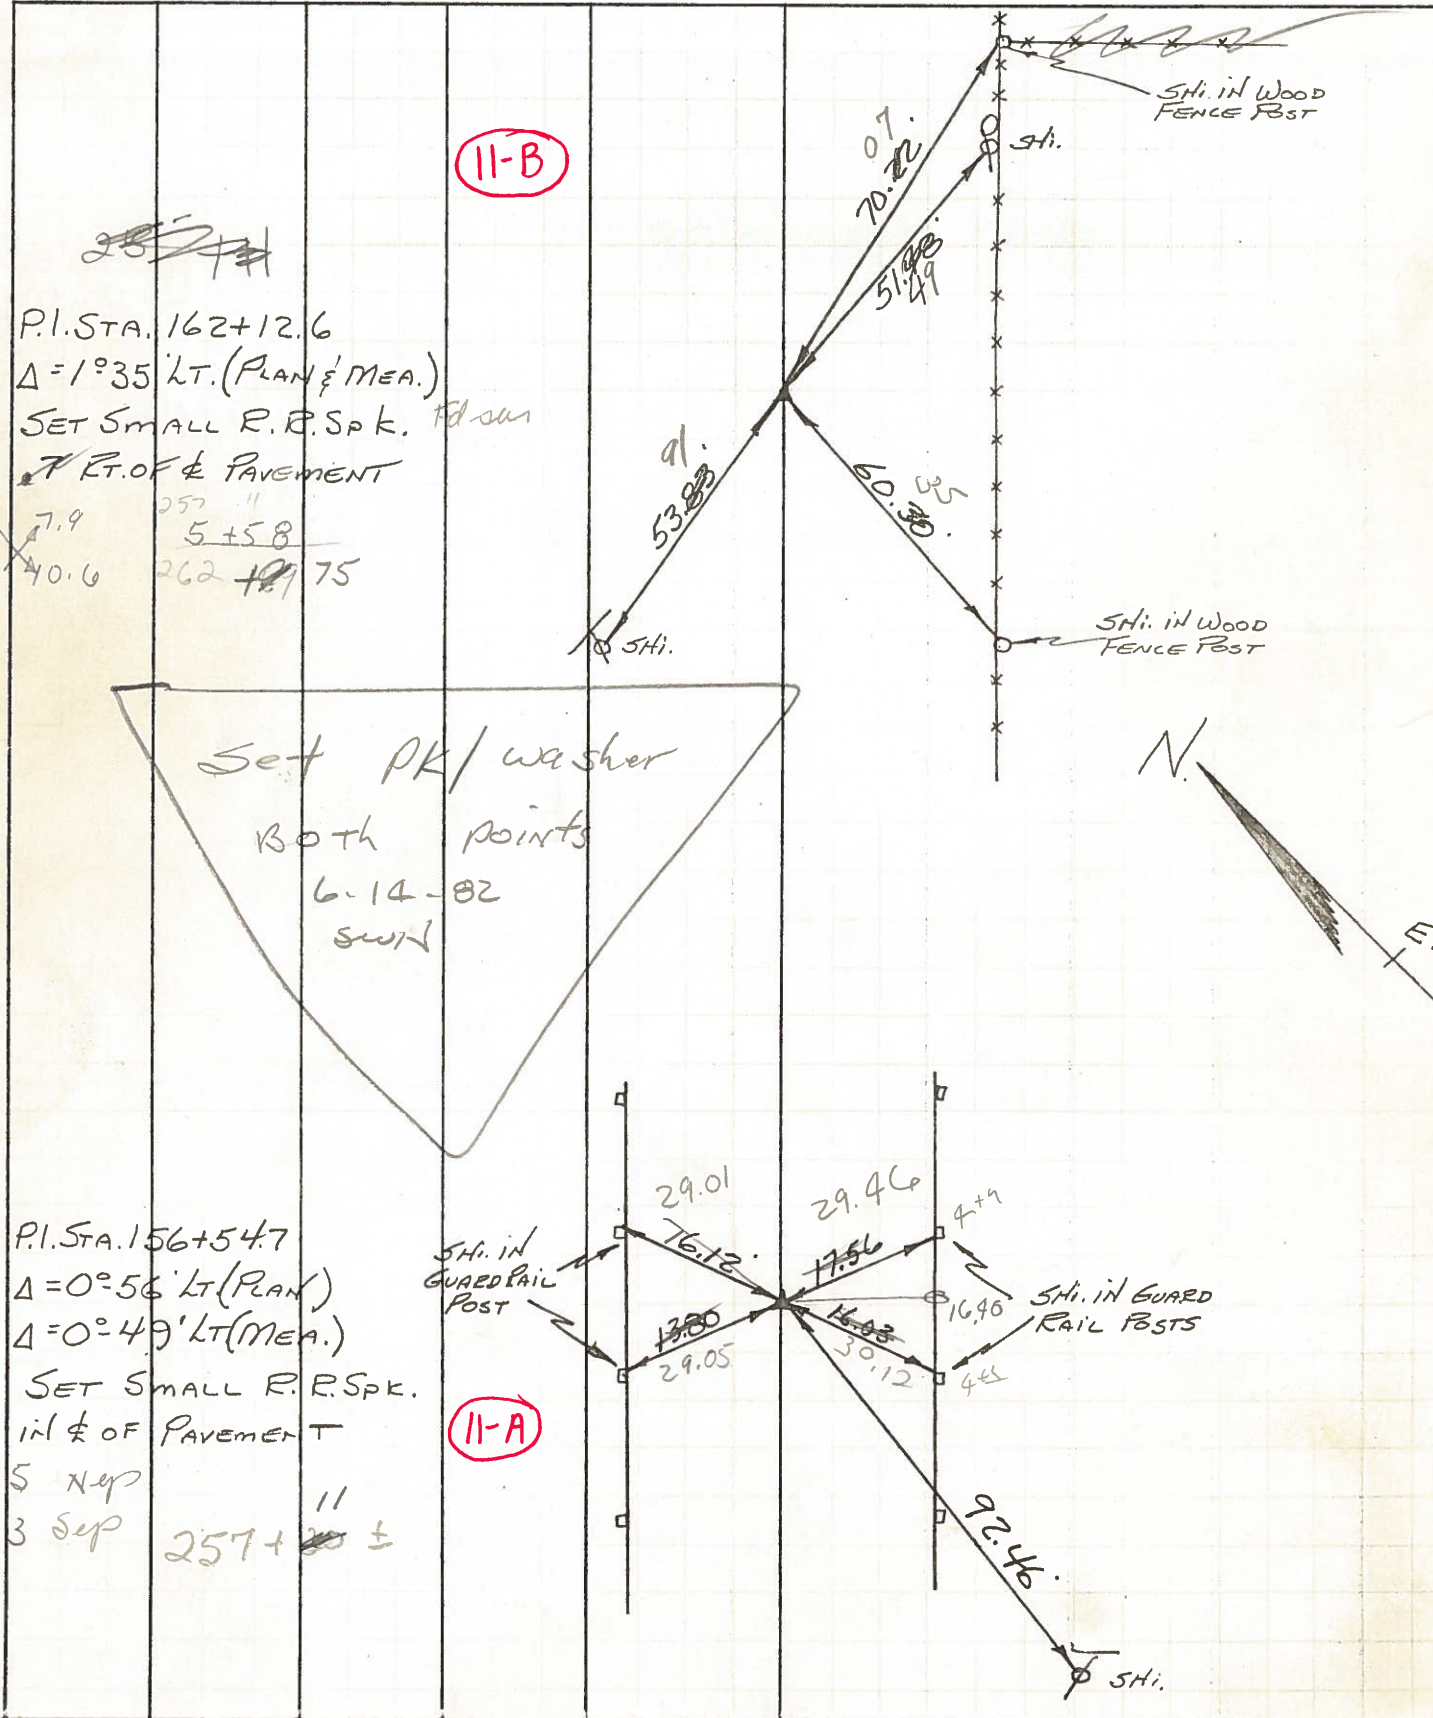 11-B
P.I. STA. 162+12.6
Δ = 1°35' LT. (PLAN & MEA.)
SET SMALL R.R. SPK.
.7 RT. OF ℄ PAVEMENT
7.9
40.6
257 11
5 +58
262 + 75
07.
70.22
51.48
49
SHi. iN WOOD
FENCE POST
SHi.
91.
53.83
60.30
35
SHi.
SHi. iN WOOD
FENCE POST
Set PK/ washer
Both points
6-14-82
N.
E.
P.I. STA. 156+54.7
Δ = 0°56' LT (PLAN)
Δ = 0°49' LT (MEA.)
SET SMALL R.R. SPK.
iN ℄ OF PAVEMENT
5 Nep
3 Sep
257 + 11 ±
11-A
SHi. iN
GUARD RAIL
POST
29.01
16.12
13.80
29.05
29.46
17.56
4th
16.40
16.03
30.12
4th
SHi. iN GUARD
RAIL POSTS
92.46
SHi.